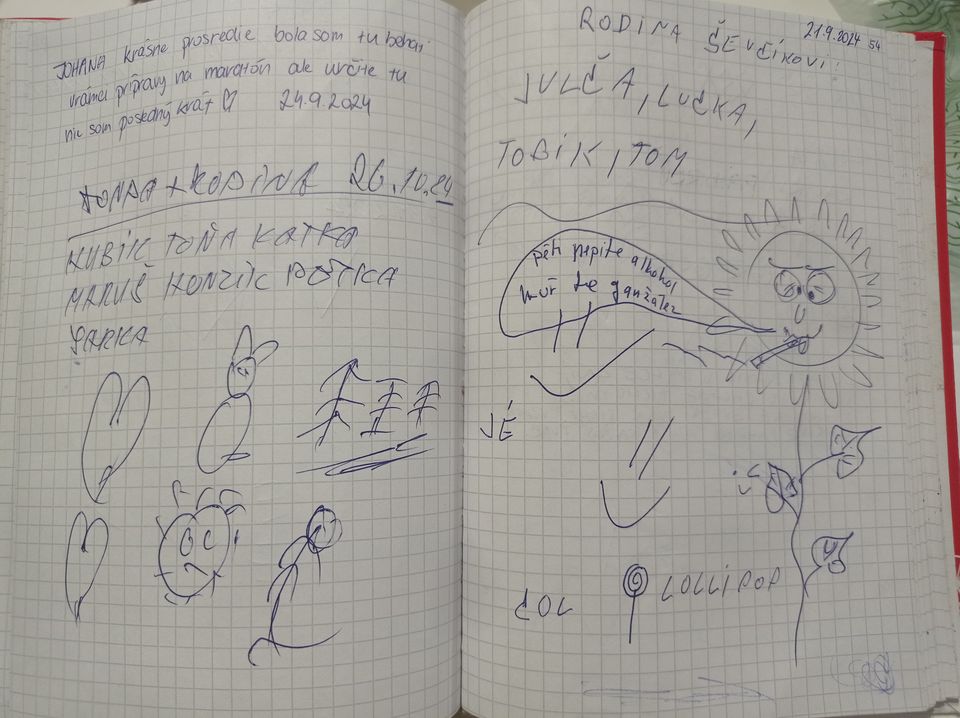 JOHANA krásne prosredie bola som tu behai
vrámci prípravy na maratón ale určite tu
nie som posledný krát ♡ 24.9.2024
TONDA + RODINA 26.10.24
KUBÍK TOŇA KATKA
MARUŠ HONZÍK
ŠARKA
RODINA ŠEVČÍKOVI!
21.9.2024 SA
JULČA, LUČKA,
TOBÍK, TOM
pěti pepite alkohol
JÉ
LOLLIPOP